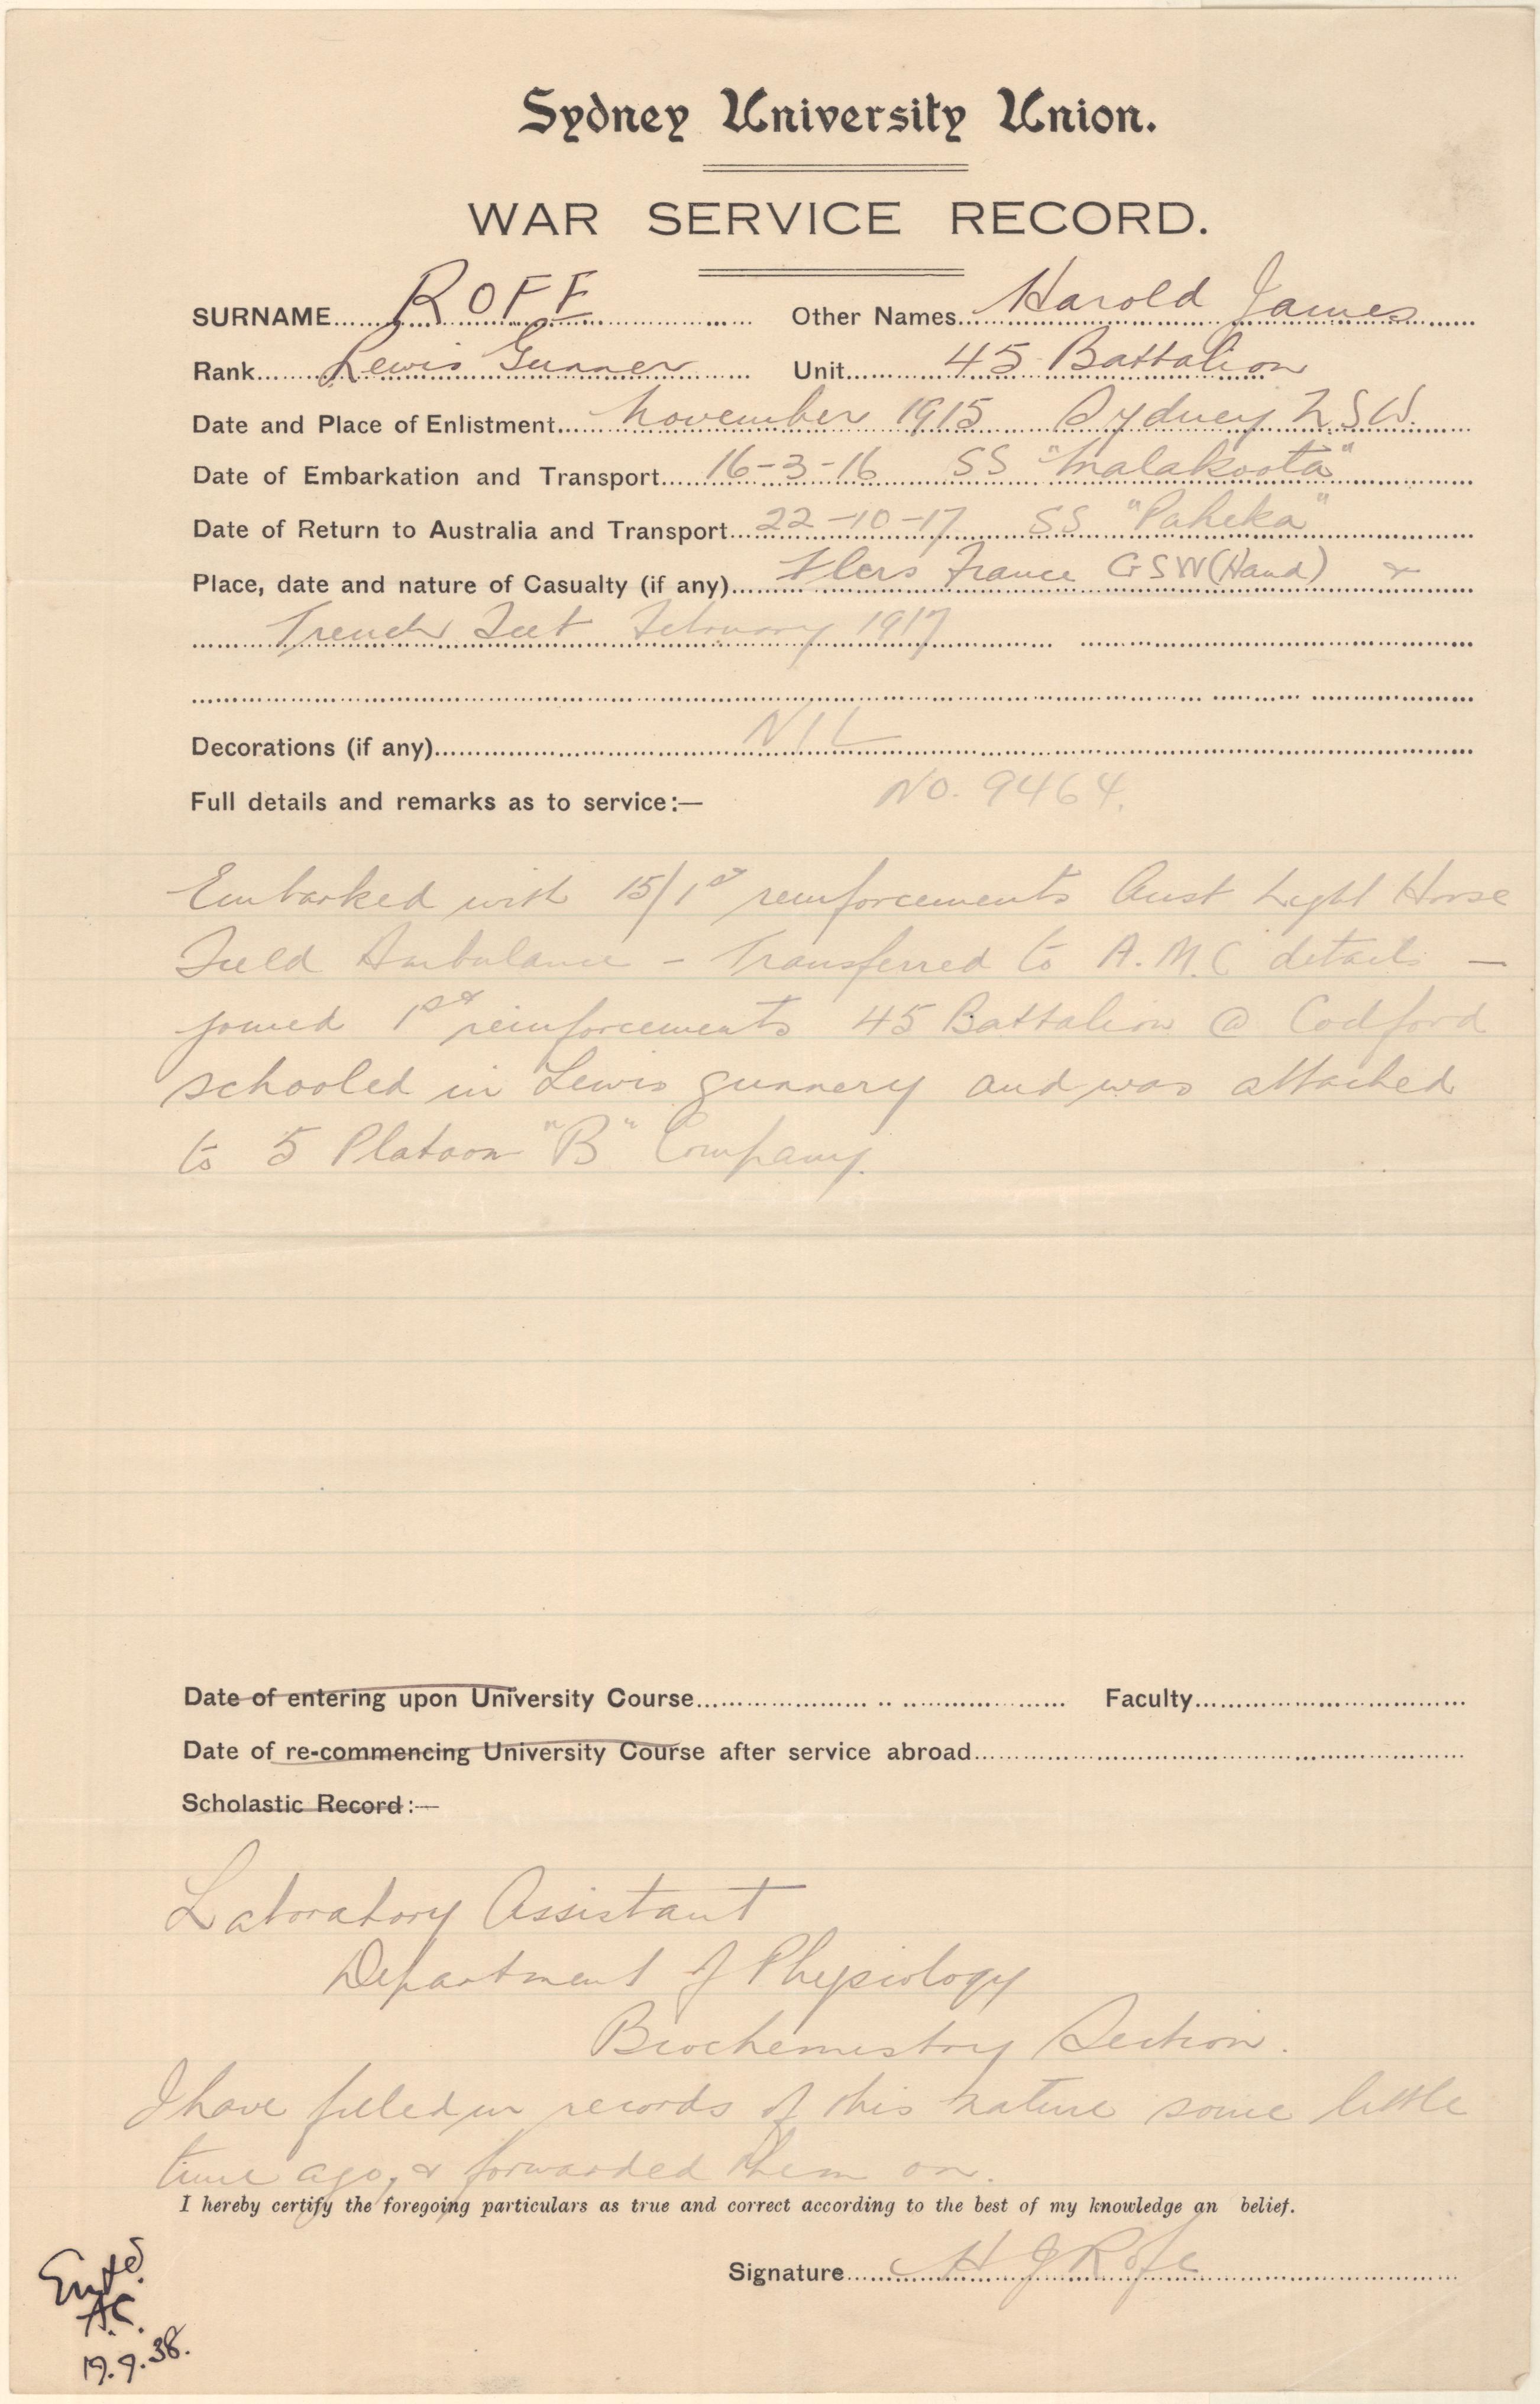 Sydney University Union.
WAR SERVICE RECORD.
SURNAME ROFE Other Names Harold James
Rank Lewis Gunner Unit 45 Battalion
Date and Place of Enlistment November 1915 Sydney N.S.W.
Date of Embarkation and Transport 16-3-16 SS "Malakoota"
Date of Return to Australia and Transport 22-10-17 SS "Pakeka"
Place, date and nature of Casualty (if any) Flers France GSW (Hand) &
Trench Feet February 1917
Decorations (if any) NIL
Full details and remarks as to service:— No. 9464.
Embarked with 15/1st reinforcements Aust Light Horse
Field Ambulance - Transferred to A.M.C details —
joined 1st reinforcements 45 Battalion @ Codford
schooled in Lewis gunnery and was attached
to 5 Platoon "B" Company.
Date of entering upon University Course Faculty
Date of re-commencing University Course after service abroad
Scholastic Record:—
Laboratory Assistant
Department of Physiology
Biochemistry Section.
I have filled in records of this nature some little
time ago, & forwarded them on.
I hereby certify the foregoing particulars as true and correct according to the best of my knowledge an belief.
Signature H J Rofe
Entd.
A.C.
19.9.38.